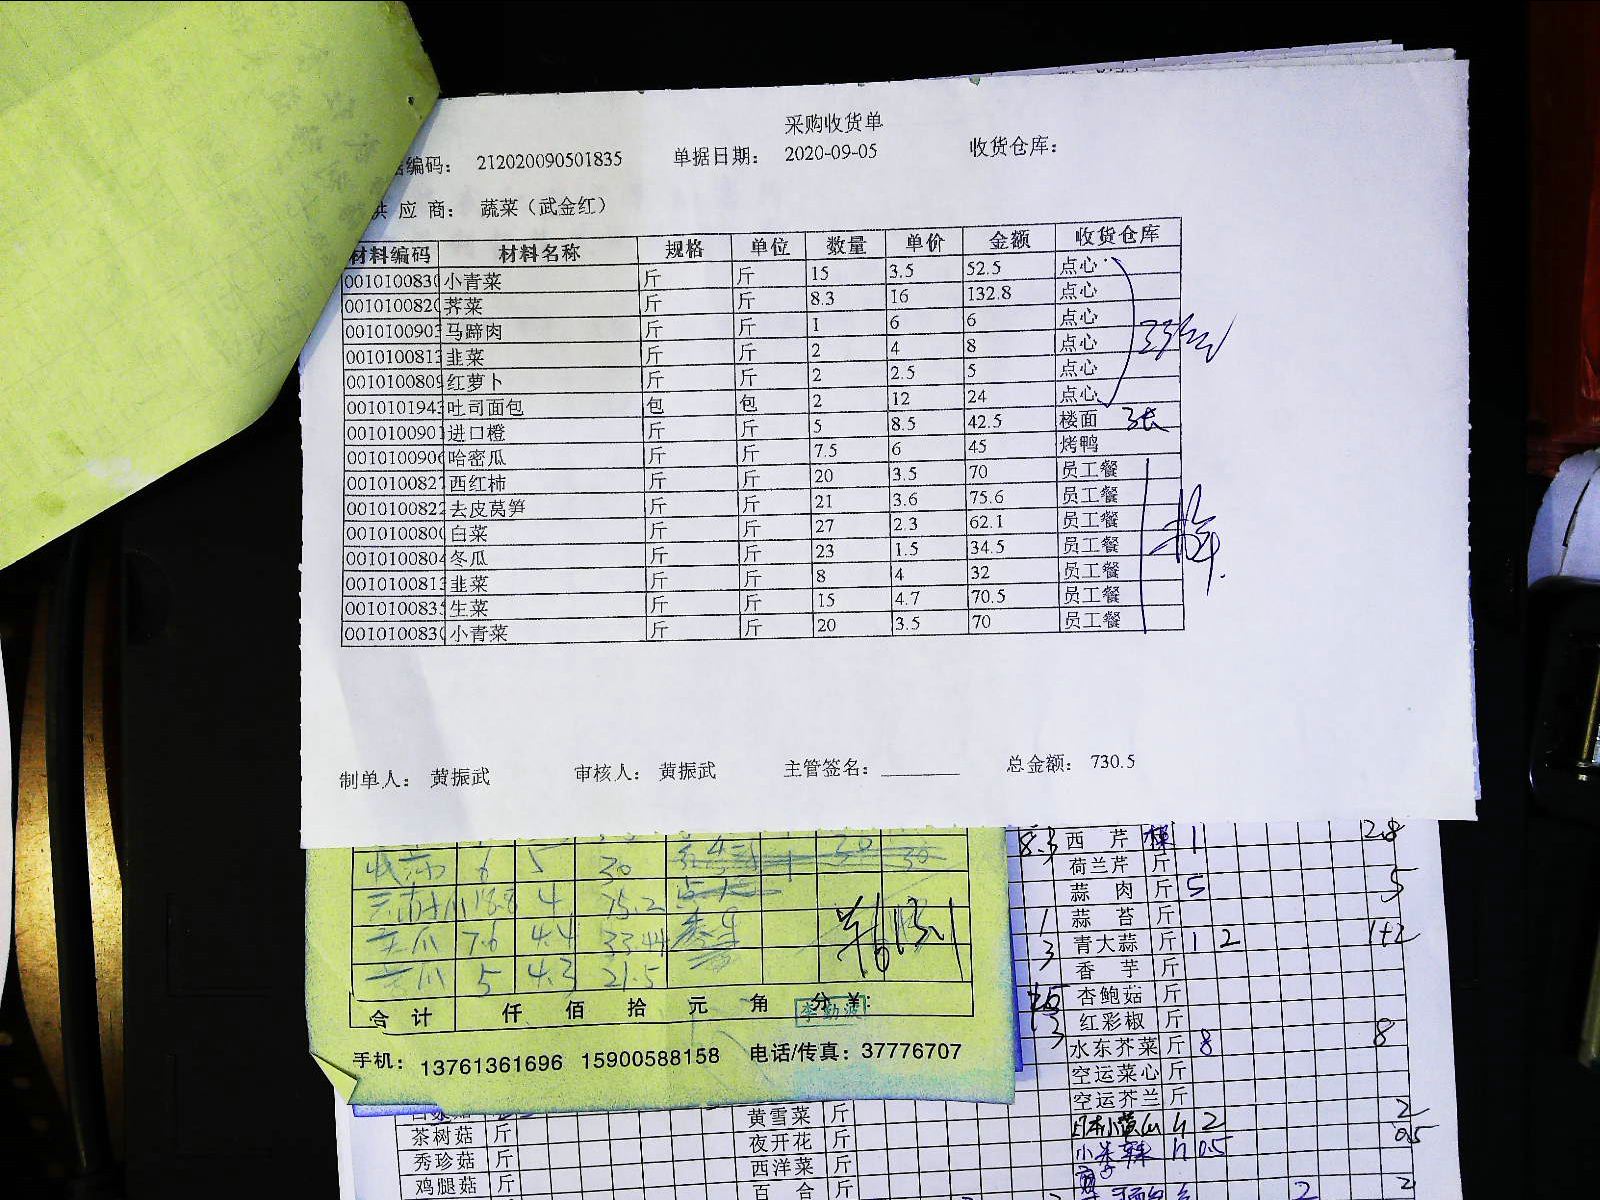 采购收货单
编码： 212020090501835 单据日期： 2020-09-05 收货仓库：
供 应 商： 蔬菜（武金红）
材料编码 材料名称 规格 单位 数量 单价 金额 收货仓库
001010083 小青菜 斤 斤 15 3.5 52.5 点心
001010082 荠菜 斤 斤 8.3 16 132.8 点心
001010090 马蹄肉 斤 斤 1 6 6 点心
001010081 韭菜 斤 斤 2 4 8 点心
001010080 红萝卜 斤 斤 2 2.5 5 点心
001010194 吐司面包 包 包 2 12 24 点心
001010090 进口橙 斤 斤 5 8.5 42.5 楼面
001010090 哈密瓜 斤 斤 7.5 6 45 烤鸭
001010082 西红柿 斤 斤 20 3.5 70 员工餐
001010082 去皮莴笋 斤 斤 21 3.6 75.6 员工餐
001010080 白菜 斤 斤 27 2.3 62.1 员工餐
001010080 冬瓜 斤 斤 23 1.5 34.5 员工餐
001010081 韭菜 斤 斤 8 4 32 员工餐
001010083 生菜 斤 斤 15 4.7 70.5 员工餐
001010083 小青菜 斤 斤 20 3.5 70 员工餐
制单人： 黄振武 审核人： 黄振武 主管签名： 总金额： 730.5
6 5 30
18.8 4 75.2
7.6 4.4 33.44
5 4.3 21.5
合 计 仟 佰 拾 元 角 分 ¥:
手机： 13761361696 15900588158 电话/传真：37776707
西 芹 1 2.8
荷兰芹 斤
蒜 肉 斤 5 5
1 蒜 苔 斤
3 青大蒜 斤 1 2 1+2
香 芋 斤
杏鲍菇 斤
红彩椒 斤
3 水东芥菜 斤 8 8
空运菜心 斤
空运芥兰 斤
2 2
小米辣 0.5 0.5
茶树菇 斤 黄雪菜 斤
秀珍菇 斤 夜开花 斤
鸡腿菇 斤 西洋菜 斤
百 合 斤 2 2